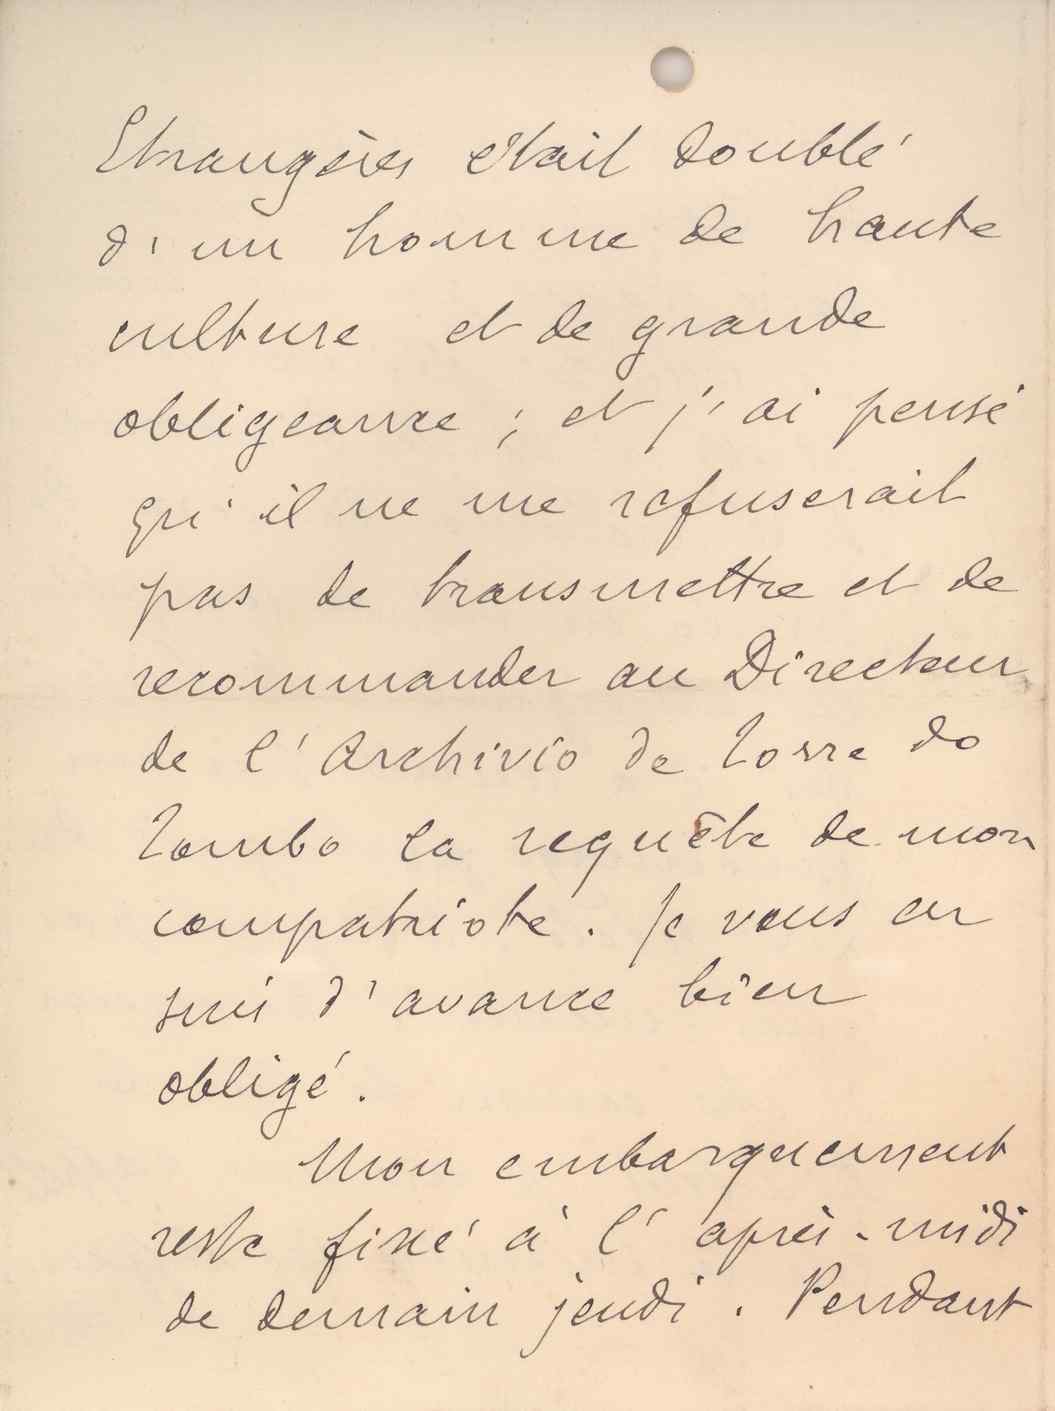 Etrangères était doublé
d'un homme de haute
culture et de grande
obligeance ; et j'ai pensé
qu'il ne me refuserait
pas de transmettre et de
recommander au Directeur
de l'Archivio de Torre do
Tombo la requête de mon
compatriote. Je vous en
suis d'avance bien
obligé.
Mon embarquement
reste fixé à l'après-midi
de demain jeudi. Pendant